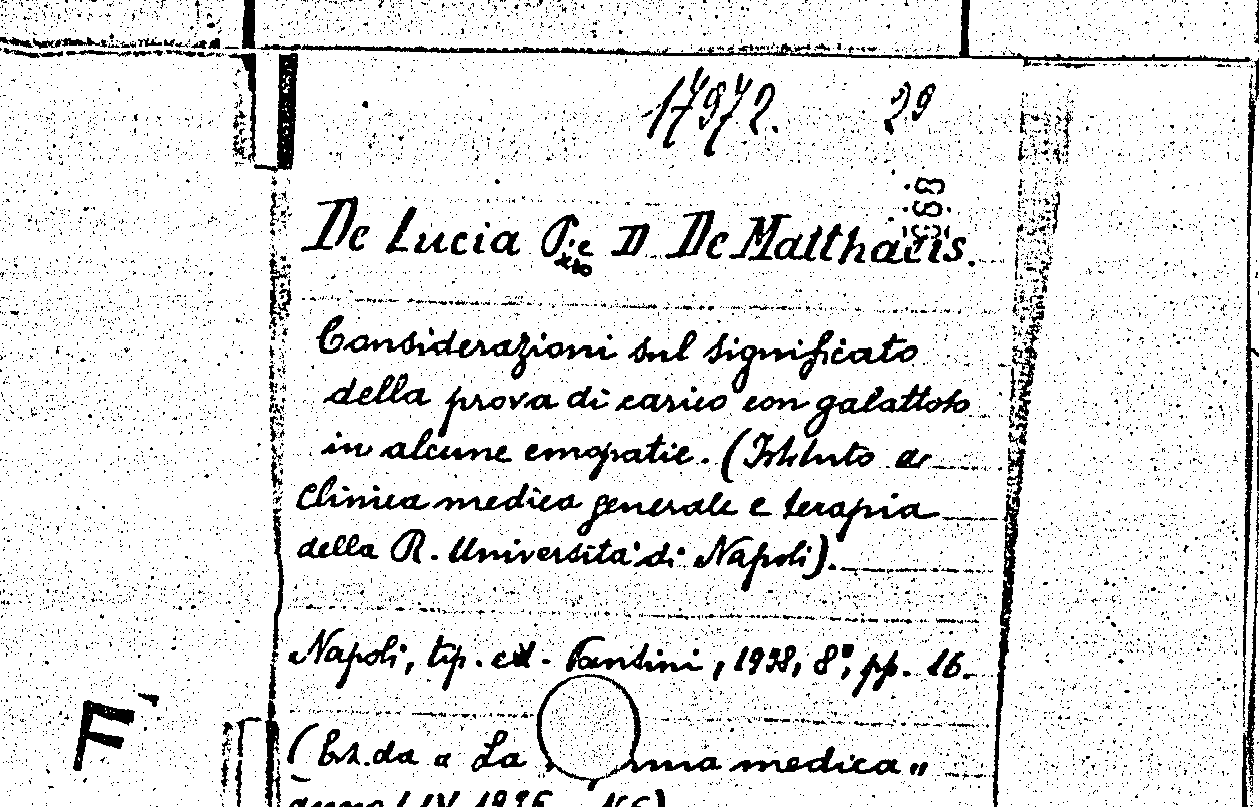 17972. 29
De Lucia P. e D. De Matthaeis.
Considerazioni sul significato
della prova di carico con galattosio
in alcune emopatie. (Istituto di
Clinica medica generale e terapia
della R. Università di Napoli).
Napoli, tip. ed. Fantini, 1938, 8°, pp. 16.
F
(Est. da « La medica „
anno LIV 1938